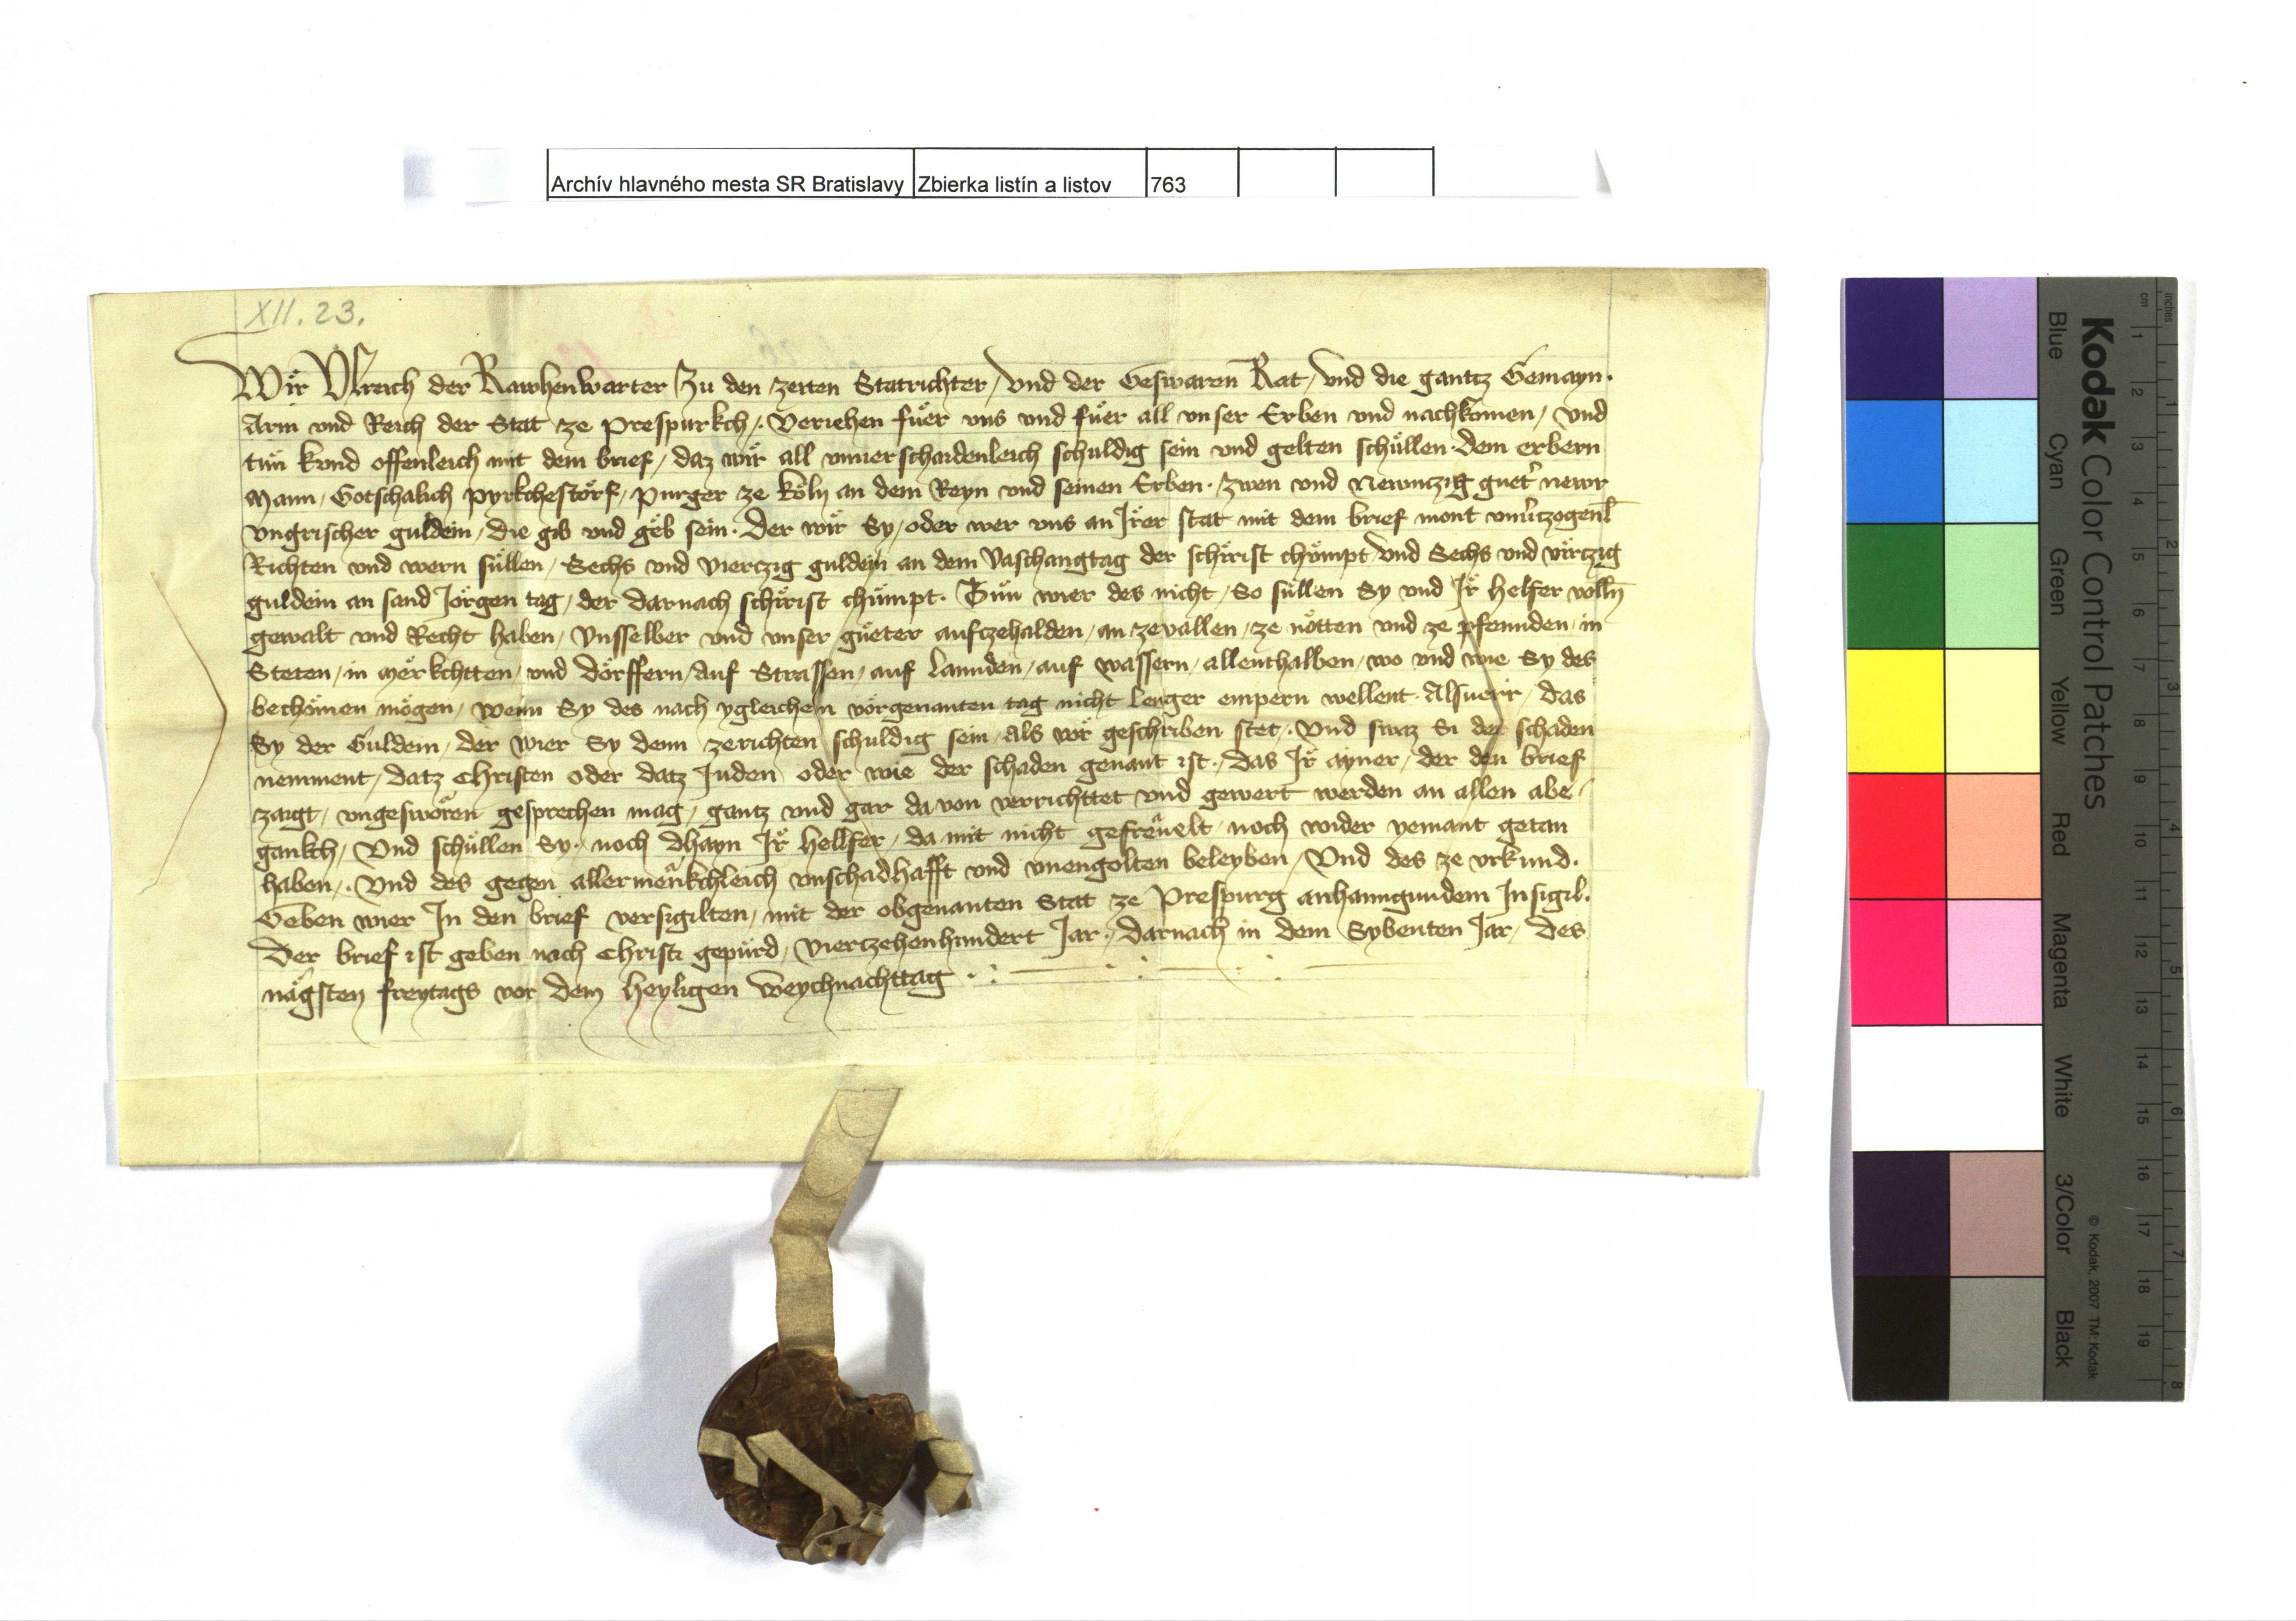 Archív hlavného mesta SR Bratislavy Zbierka listín a listov 763
XII. 23.
Wir Vlreich der Rawhenwarter Zu den zeiten Statrichter / vnd der Geswaren Rat / vnd die gantz Gemayn .
Arm vnd Reich der Stat ze Prespurkch / . Veriehen für vns vnd für all vnser Erben vnd nachkomen / vnd
tün kund offenleich mit dem brief / daz wir all vnuerschaidenleich schuldig sein vnd gelten schüllen . dem erbern
Mann / Gotschalich pyrkchestörf / purger ze Köln an dem Reyn vnd seinen Erben . zwen vnd Newntzig guet newr
vngrischer guldein / die gib vnd geb sein . Der wir Sy / oder wer vns an Irer stat mit dem brief mont vnuertzogenl
Richten vnd wern süllen / Sechs vnd viertzig guldein an dem Vaschangtag der schirist chömpt vnd Sechs vnd virtzig
guldein an sand Jörgen tag / der darnach schirist chümpt . Tün wier des nicht / So süllen Sy vnd Ir helfer volln
gewalt vnd Recht haben / vnsselber vnd vnser güeter aufczehalden / an zevallen / ze nötten vnd ze pfennden / in
Steten / in Merkchtten / vnd dörffern / auf Strassen / auf Lannden / auf wassern / allenthalben / wo vnd wie Sy des
bechömen mögen / wenn Sy des nach ygleichem vorgenanten tag nicht lenger empern wellent . Alsuerr / das
Sy der Guldein / der wier Sy denn zerichten schuldig sein / als vor geschriben stet / . Vnd swaz Si der schaden
nemment / datz Christen oder datz Juden oder wie der schaden genant ist . / das Ir ayner / der den brief
zaigt / vngesworen gesprechen mag / gantz vnd gar da von verrichttet vnd gewert werden an allen abe /
gankch / Vnd schüllen Sy . / noch dhayn Ir hellfer / da mit nicht gefreuelt / noch wider yemant getan
haben / . Vnd des gegen allermenkchleich vnschadhafft vnd vnengolten beleyben / Vnd des ze vrkund .
Geben wier In den brief versigilten / mit der obgenanten Stat ze Prespurg anhanngundem Insigil .
Der brief ist geben nach Christi gepurd / viertzehenhundert Jar . / darnach in dem Sybenten Jar / des
nägsten freytags vor dem heyligen Weychnachttag . :
Kodak Color Control Patches
Blue Cyan Green Yellow Red Magenta White 3/Color Black
© Kodak, 2007 TM: Kodak
inches 1 2 3 4 5 6 7 8
cm 1 2 3 4 5 6 7 8 9 10 11 12 13 14 15 16 17 18 19